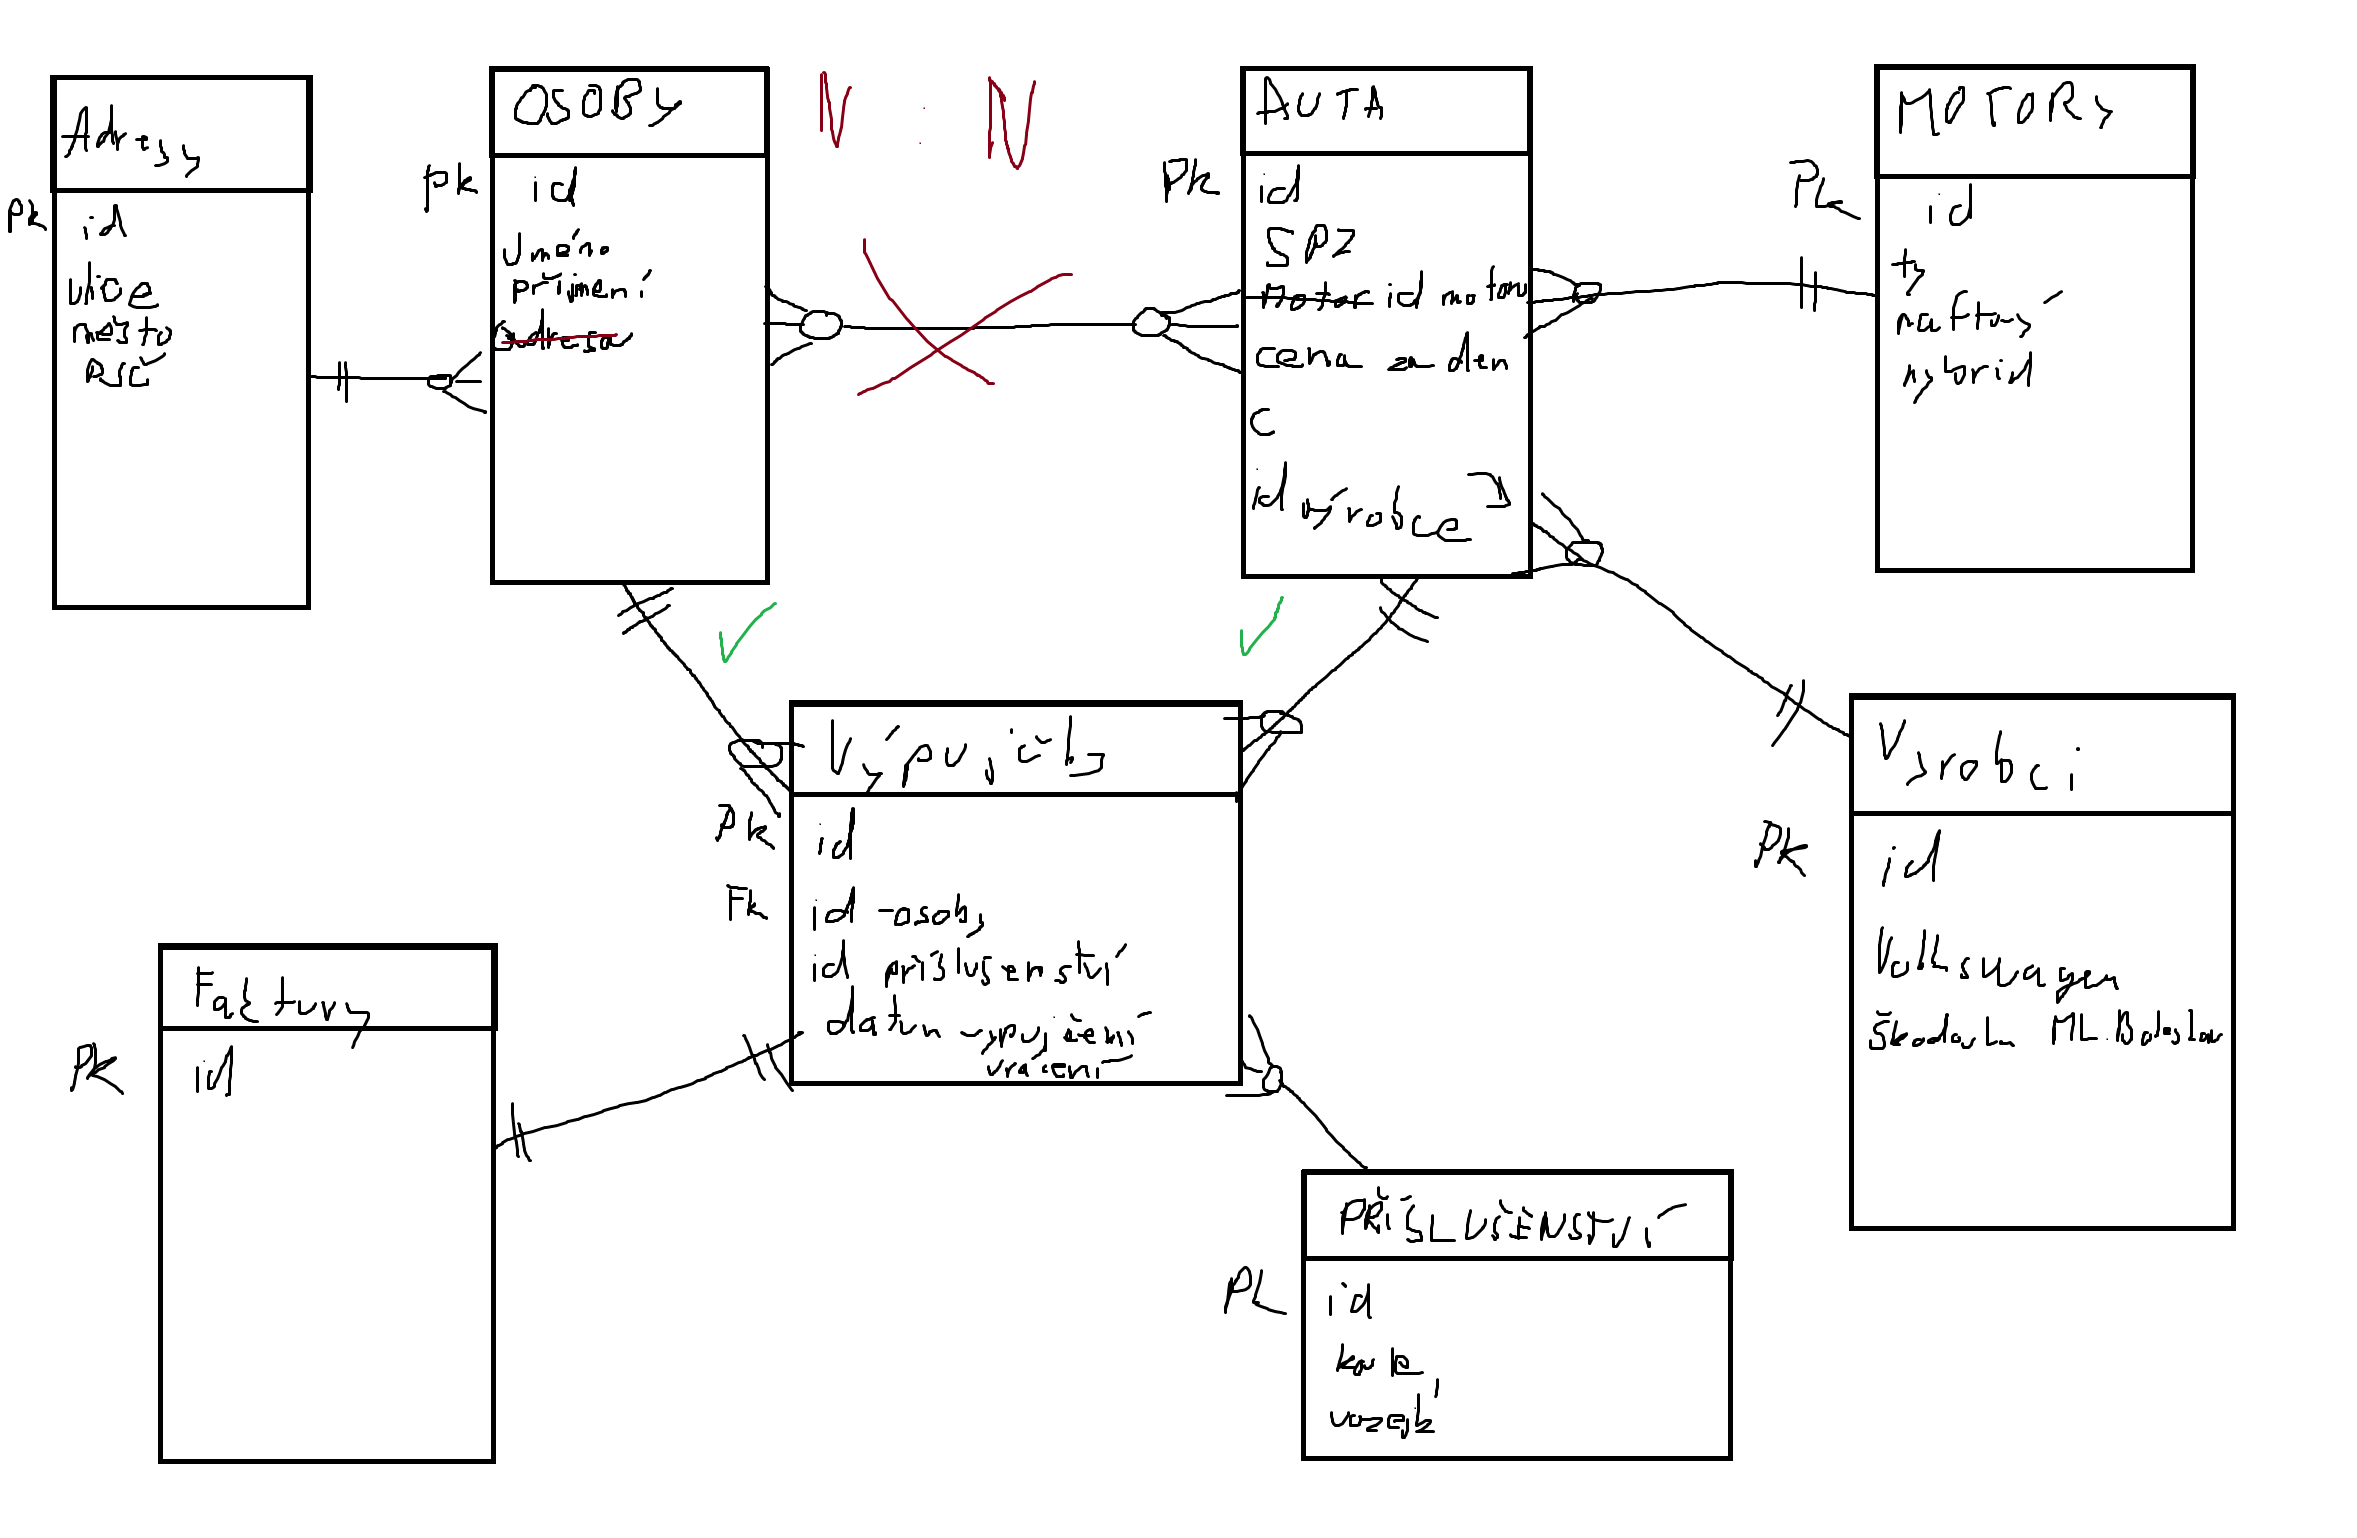 Adresy
pk
id
ulice
město
PSČ
OSOBY
pk
id
Jméno
příjmení
adresa
N : N
AUTA
Pk
id
SPZ
Motor id motoru
cena za den
C
id výrobce
MOTORY
Pk
id
ty
naftový
hybrid
Výpujčky
Pk
id
Fk
id -osoby
id příslušenství
datum vypujčení
vrácení
Výrobci
PK
id
Volkswagen
Škodovka ML.Boleslav
Faktury
PK
id
PŘÍSLUŠENSTVÍ
PK
id
vozejk